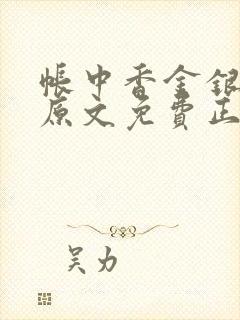 帐中香金银
原文免费正
吴力